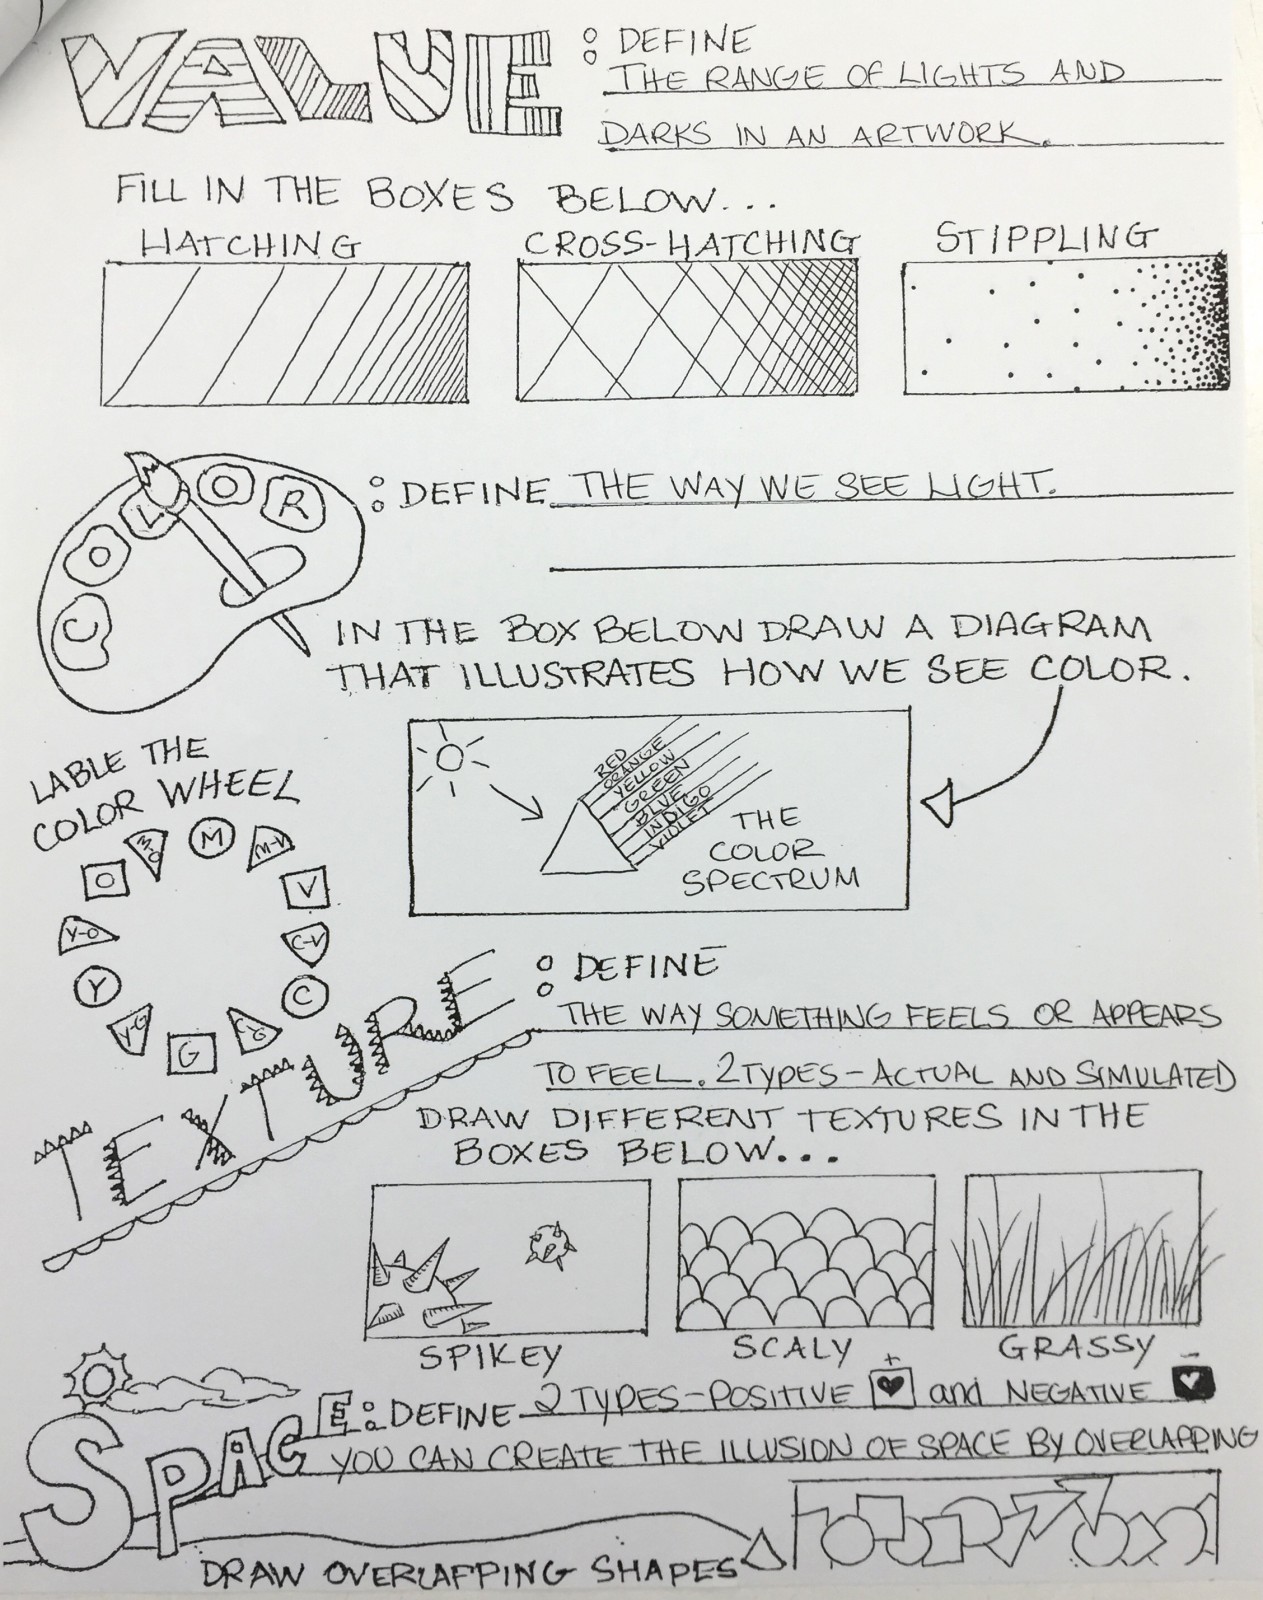 VALUE : DEFINE
THE RANGE OF LIGHTS AND
DARKS IN AN ARTWORK.
FILL IN THE BOXES BELOW...
HATCHING CROSS-HATCHING STIPPLING
COLOR : DEFINE THE WAY WE SEE LIGHT.
IN THE BOX BELOW DRAW A DIAGRAM
THAT ILLUSTRATES HOW WE SEE COLOR.
RED
ORANGE
YELLOW
GREEN
BLUE
INDIGO
VIOLET
THE
COLOR
SPECTRUM
LABLE THE
COLOR WHEEL
M
M-V
V
C-V
C
C-G
G
Y-G
Y
Y-O
O
M-O
TEXTURE : DEFINE
THE WAY SOMETHING FEELS OR APPEARS
TO FEEL. 2 TYPES - ACTUAL AND SIMULATED
DRAW DIFFERENT TEXTURES IN THE
BOXES BELOW...
SPIKEY SCALY GRASSY
+ -
SPACE: DEFINE 2 TYPES - POSITIVE and NEGATIVE
YOU CAN CREATE THE ILLUSION OF SPACE BY OVERLAPPING
DRAW OVERLAPPING SHAPES